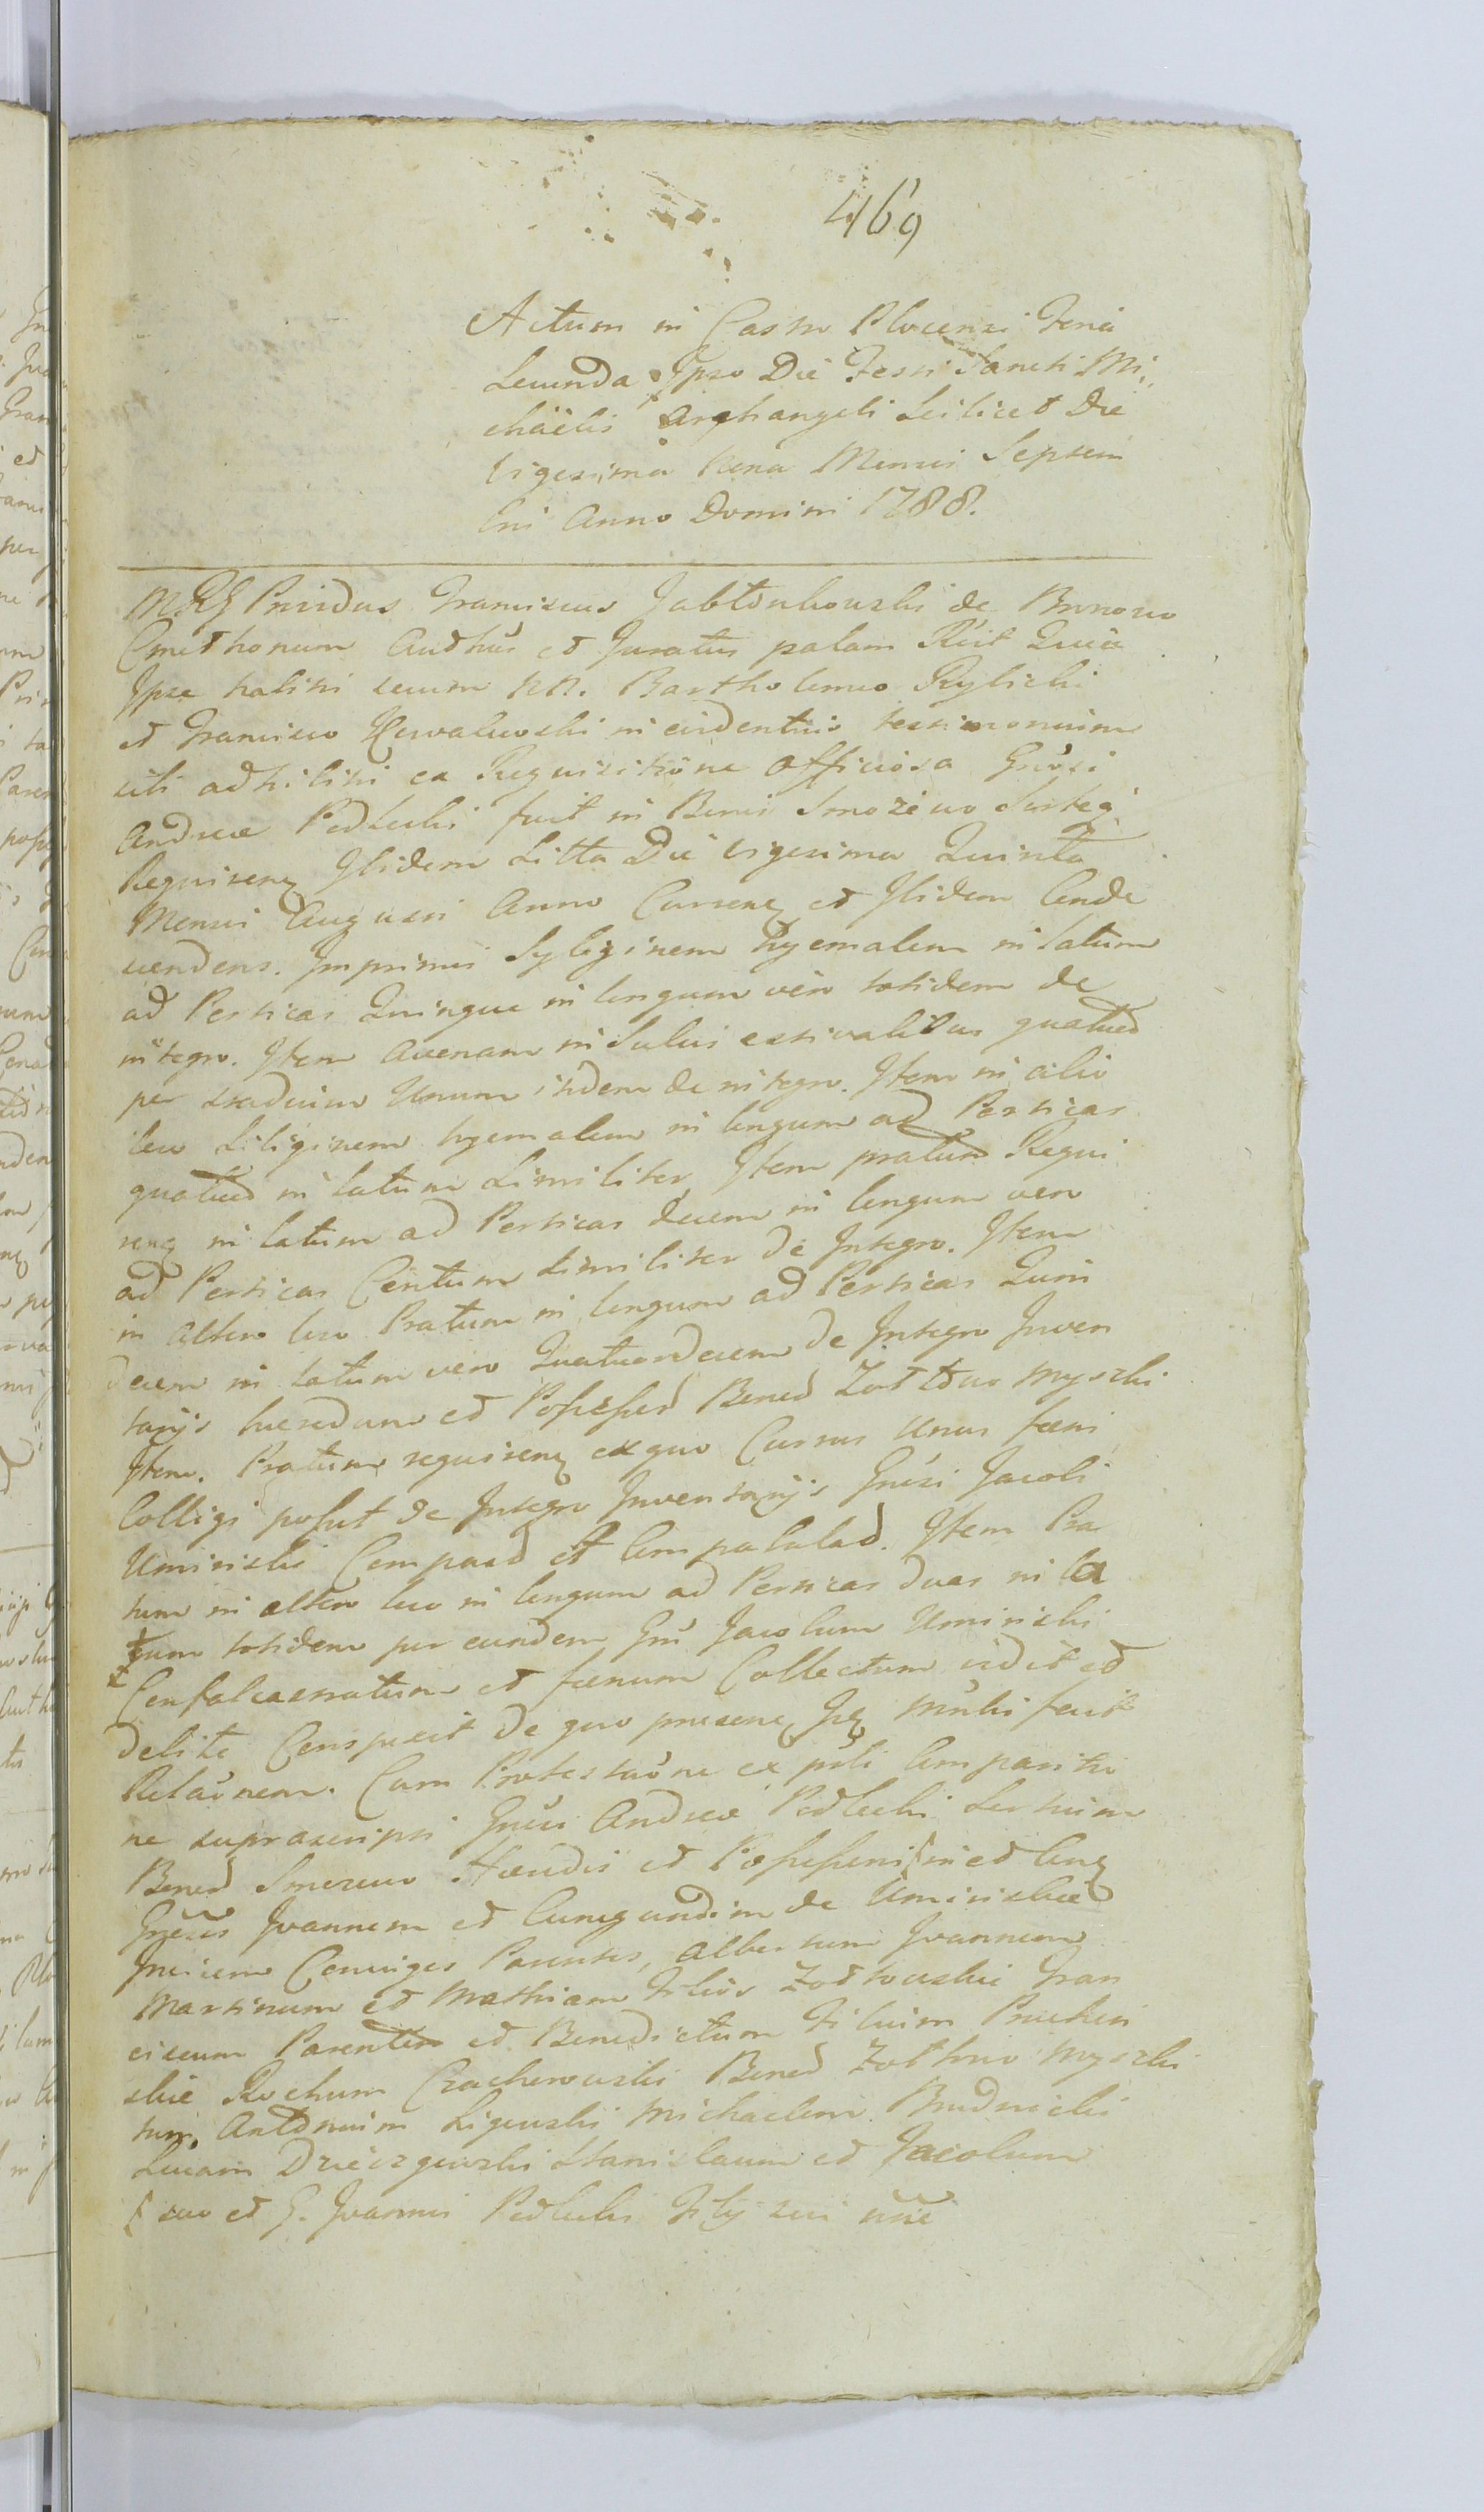 469
Actum in Castro Plocensi Feria
Secunda Ipso Die Festi Sancti Mi„
chäelis Archangeli Scilicet Die
Vigesima Nona Mensis Septem
bri Anno Domini 1788.
MRG Providus Franciscus Jabłonkowski de Brnowo
Cmethonum Authús et Juratus palam Rúit Quia
Ipse habitis secum NN. Bartholomeo Rylicki
et Francisco Kowalewski in evidentius testimonium
sibi adhibitis ex Requisitione officiosa Gnósi
Andreæ Podlecki fuit in Bonis Smorzewo
Requirenę Ibidem Die Vigesima Quinta
Mensis Augusti Anno Currenę et Ibidem Conde
scendens. Imprimis Syliginem hyemalem in latum
ad Perticas Quinque in longum vero totidem de
integro. Item avenam in Sulcis estivalibus quatuor
per stadium Unum itidem de integro. Item in alio
loco Siliginem hyemalem in longum ad Perticas
quatuor in latum Similiter, Item pratum Requi
renę in latum ad Perticas decem in longum vero
ad Perticas Centum Similiter de Integro. Item
in altero loco Pratum in longum ad Perticas Quin
decem in latum vero Quatuordecem de Integro Inven
tarijs hæredum et Possessor Bonor Zołtowo Myszki
Item. Pratum requirenę ex quo Currus Unus fœni
Colligi posset de Integro Inventarijs Gnósi Jacobi
Uminiski Compasc et Compabulað. Item Pra
tum in altero loco in longum ad Perticas duas in la
tum totidem per eundem Gnú Jacobum Uminiski
Confalcastratum et fœnum Collectum vidit et
debite Conspexit de quo presenę Iję Mnhi fecit
Relaónem. Cum Protestaóne ex pśli Compariti
ne suprascripti Gnósi Andreæ Podlecki Sortium
Bonor Smorzewo Hæredis et Possessoris
Gnósos Joannem et Cunegundim de Uminiskie
Invicem Conjuges Parentes, Albertum Joannem
Martinum et Mathiam Filios Zołtowskie Fran
ciscum Parentem et Benedictum Filium Pruchni
skie Rochum Czachorowski Bonor Zołtowo Myszki
tum, Antonium Ligowski Michaelem Brudnicki
Lucam Dzierzgowski Stanislaum et Jacobum
suo et G. Joannis Podlecki Filij sui nõie